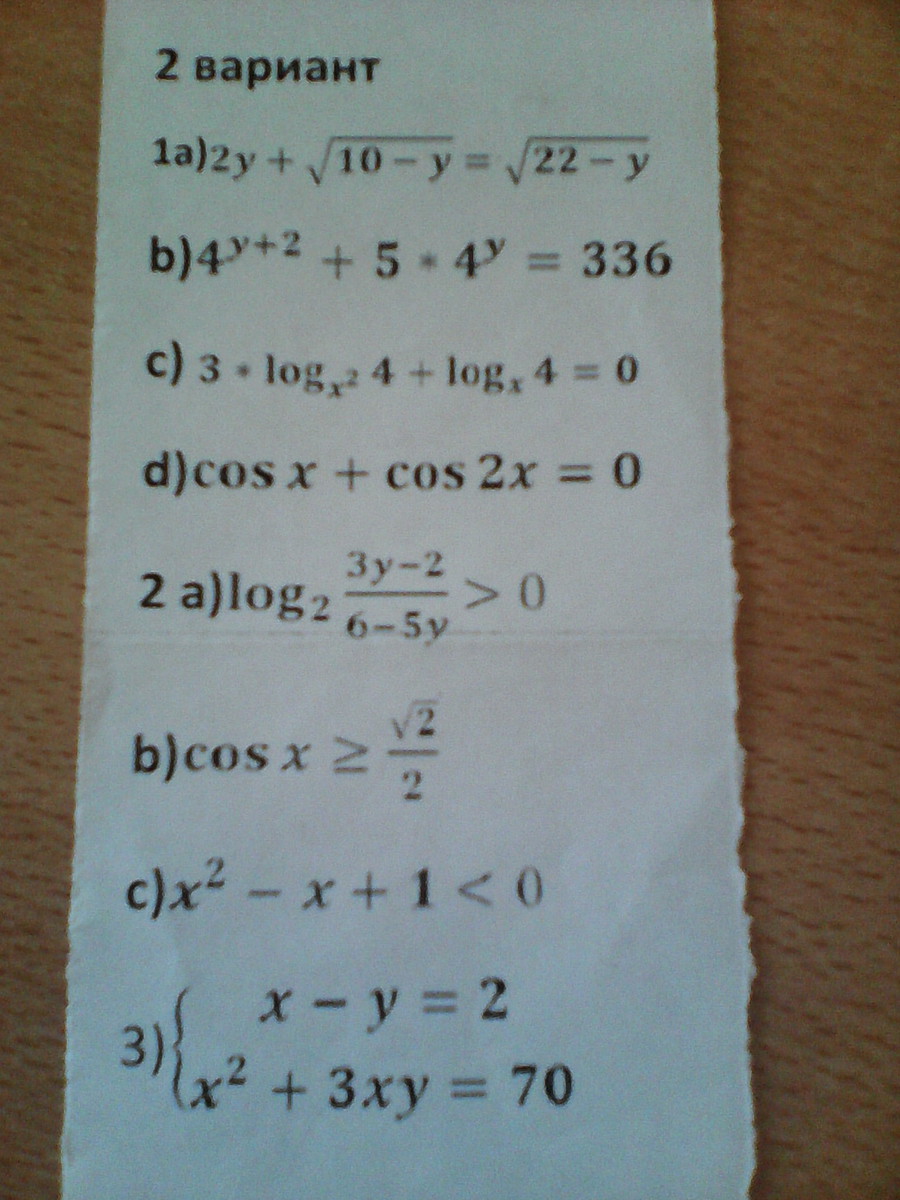 2 вариант
1a)2y + √(10 − y) = √(22 − y)
b)4^{y+2} + 5 * 4^y = 336
c) 3 * log_{x^2} 4 + log_x 4 = 0
d)cos x + cos 2x = 0
2 a)log_2 (3y−2)/(6−5y) > 0
b)cos x ≥ √2/2
c)x^2 − x + 1 < 0
3){ x − y = 2
x^2 + 3xy = 70